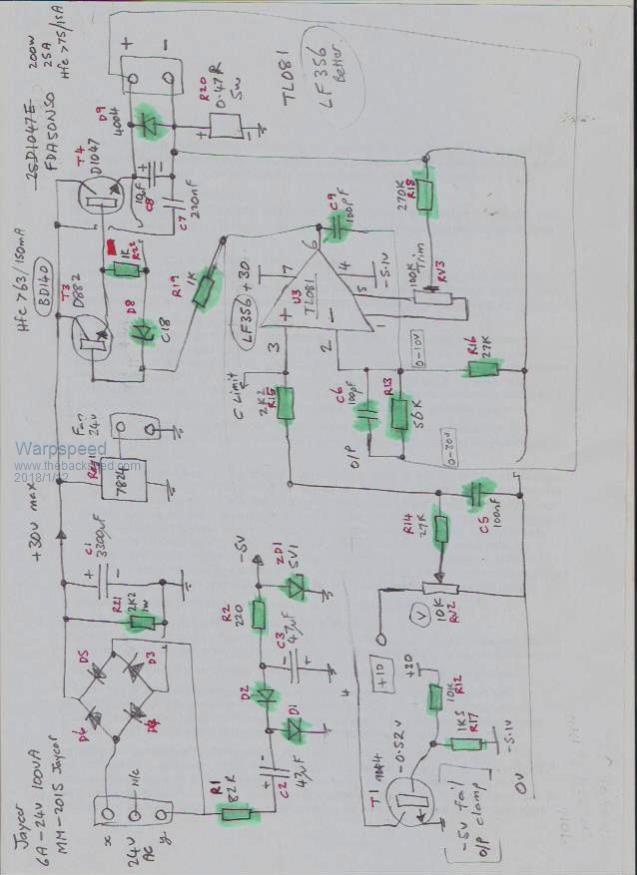 Jaycar
6A-24V 100VA
MM-2015 Jaycar
x
24V
AC
y
N/C
D5
D3
D6
D4
R21
2K2
1W
C1
3300uF
+
-
+30V max
Reg1
7824
Fan
24V
Hfc >63/150mA
BD140
T3
D882
R22
1K
D8
C18
R19
1K
2SD1047E
FDA50N50
T4
D1047
10uF
C8
C7
220nF
200W
25A
Hfc >75/15A
+
-
D9
4004
R20
0.47R
5W
TL081
LF356
Better
R1
82R
C2
47uF
D1
D2
C3
47uF
R2
220
-5V
ZD1
5V1
C Limit
3
2
R15
2K2
LF356
+30
7
U3
TL081
6
4
-5.1V
5
1
C9
100pF
100K
Trim
RV3
270K
R18
O/P
C6
100pF
R13
56K
0-10V
0-30V
R16
27K
R14
27K
C5
100nF
+10
V
10K
RV2
T1
-0.52V
+30
10K
R12
1K5
R17
-5.1V
-5V fail
O/P clamp
0V
Warpspeed
www.thebackshed.com
2018/1/12